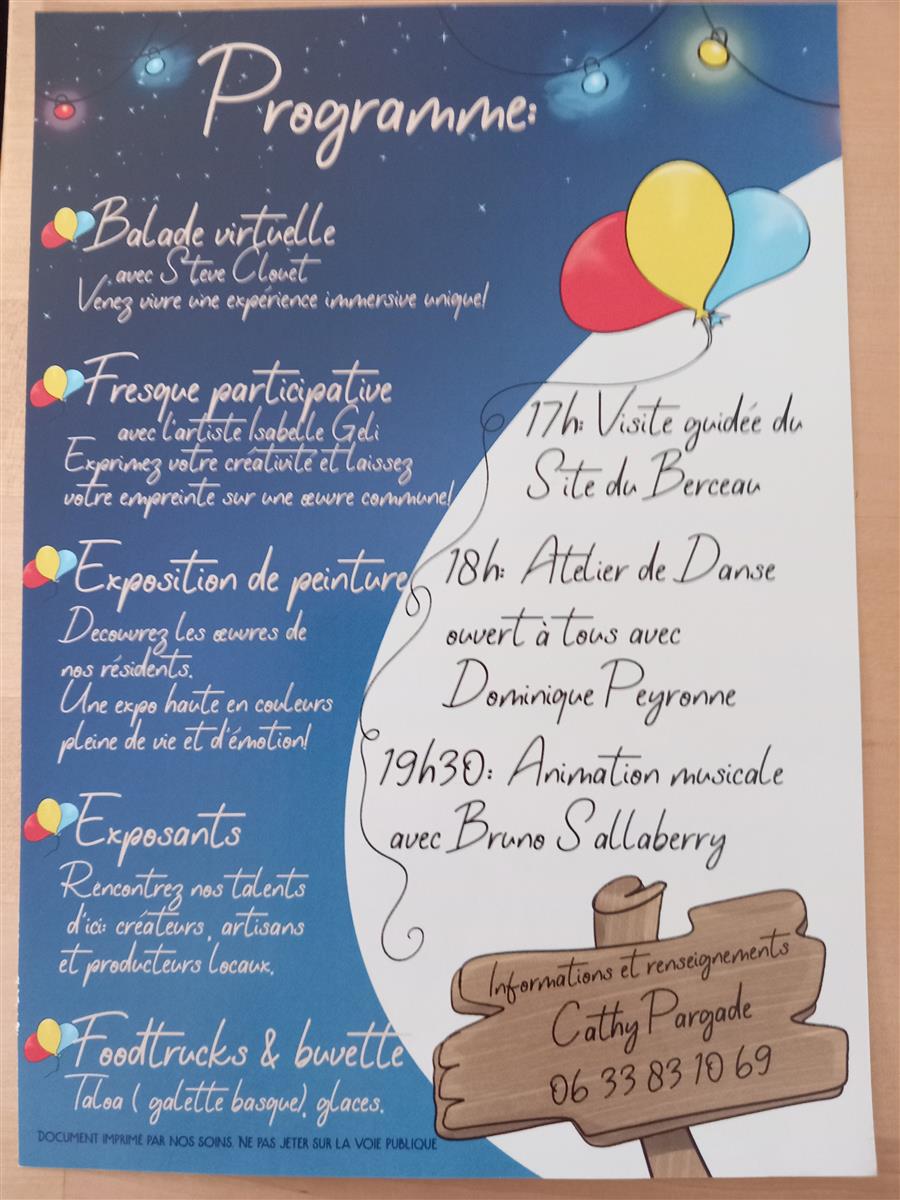 Programme:
Balade virtuelle
avec Steve Clouet
Venez vivre une expérience immersive unique!
Fresque participative
avec l'artiste Isabelle Geli
Exprimez votre créativité et laissez
votre empreinte sur une œuvre commune!
Exposition de peinture
Decouvrez les œuvres de
nos résidents.
Une expo haute en couleurs
pleine de vie et d'émotion!
Exposants
Rencontrez nos talents
d'ici: créateurs, artisans
et producteurs locaux.
Foodtrucks & buvette
Taloa ( galette basque), glaces.
17h: Visite guidée du
Site du Berceau
18h: Atelier de Danse
ouvert à tous avec
Dominique Peyronne
19h30: Animation musicale
avec Bruno Sallaberry
Informations et renseignements
Cathy Pargade
06 33 83 10 69
DOCUMENT IMPRIMÉ PAR NOS SOINS. NE PAS JETER SUR LA VOIE PUBLIQUE